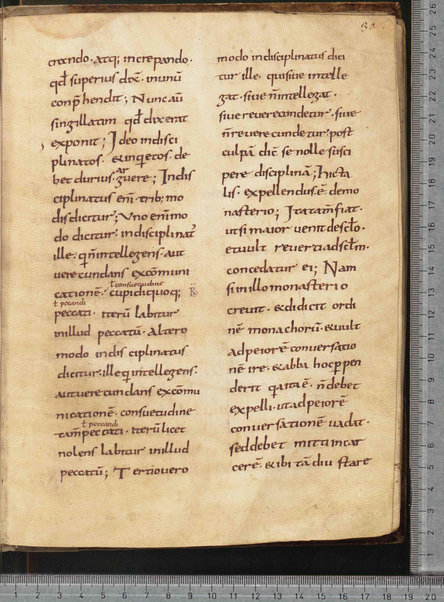 creando· atq; increpando·
qđ superius dix̄· inunū
conp̄hendit; Nunc aū
singillatim qđ dixerat
exponit; Ideo indisci
plinatos· & inqi&os· de
bet durius arguere; Indis
ciplinatus enī· trib; mo
dis dicitur; Uno enī mo
do dicitur· indisciplinat᾽
ille· qi n̄ intellegens· aut
uerecundans excōmuni
cationē· cupidiquoq;
t consuetudine
t peccandi
peccati· Iterū labitur
inillud peccatū· Altero
modo indisciplinatus
dicitur· ille qi intellegens·
aut uerecundans excōmu
nicationē· consuetudine
t peccandi
tam peccati· Iterū licet
nolens labitur inillud
peccatū; Tertio uero
30
modo indisciplinatus dici
tur ille· qui siue intelle
gat· siue n̄ intellegat·
siue reuerecundetur· siue
n̄ reuerecundetur· post
culpā dic̄ se nolle susci
pere disciplinā; hic ta
lis· expellendus· ē· de mo
nasterio; Ita tam̄ fiat·
ut si maior uenit descl̄o·
& uult reuerti ad scl̄m·
concedatur ei; Nam
si in illo monasterio
creuit· & didicit ordi
nē monachorū· & uult
ad peiorē conuersatio
nē ire· & abba hoc p̄pen
derit qi ita ē· n̄ debet
expelli· ut ad peiorē
conuersationē uadat·
sed debet mitti in car
cerē· & ibi tā diu stare